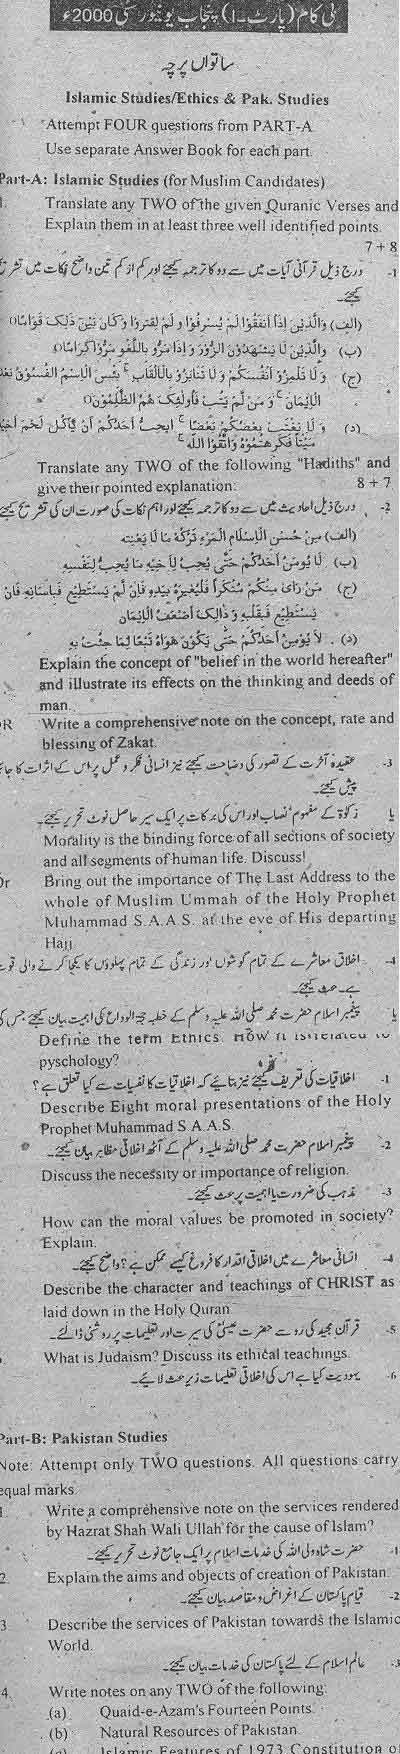 بی کام (پارٹ-I) پنجاب یونیورسٹی 2000ء
ساتواں پرچہ
Islamic Studies/Ethics & Pak. Studies
Attempt FOUR questions from PART-A
Use separate Answer Book for each part.
Part-A: Islamic Studies (for Muslim Candidates)
Translate any TWO of the given Quranic Verses and
Explain them in at least three well identified points.
7 + 8
1- درج ذیل قرآنی آیات میں سے دو کا ترجمہ کیجئے اور کم از کم تین واضح نکات میں تشریح
کیجئے۔
(الف) وَالَّذِينَ إِذَا أَنفَقُوا لَمْ يُسْرِفُوا وَلَمْ يَقْتِرُوا وَكَانَ بَيْنَ ذَلِكَ قَوَامًا
(ب) وَالَّذِينَ لَا يَشْهَدُونَ الزُّورَ وَإِذَا مَرُّوا بِاللَّغْوِ مَرُّوا كِرَامًا
(ج) وَلَا تَلْمِزُوا أَنفُسَكُمْ وَلَا تَنَابَزُوا بِالْأَلْقَابِ بِئْسَ الِاسْمُ الْفُسُوقُ بَعْدَ
الْإِيمَانِ وَمَنْ لَمْ يَتُبْ فَأُولَئِكَ هُمُ الظَّلِمُونَ
(د) وَلَا يَغْتَب بَعْضُكُمْ بَعْضًا أَيُحِبُّ أَحَدُكُمْ أَنْ يَأْكُلَ لَحْمَ أَخِيهِ
مَيْتًا فَكَرِهْتُمُوهُ وَاتَّقُوا اللَّهَ
Translate any TWO of the following "Hadiths" and
give their pointed explanation: 8 + 7
2- درج ذیل احادیث میں سے دو کا ترجمہ کیجئے اور اہم نکات کی صورت ان کی تشریح کیجئے
(الف) مِنْ حُسْنِ الْإِسْلَامِ الْمَرْءِ تَرْكُهُ مَا لَا يَعْنِيهِ
(ب) لَا يُؤْمِنُ أَحَدُكُمْ حَتَّى يُحِبُّ لِأَخِيهِ مَا يُحِبُّ لِنَفْسِهِ
(ج) مَنْ رَأَى مِنْكُمْ مُنْكَرًا فَلْيُغَيِّرْهُ بِيَدِهِ فَإِنْ لَمْ يَسْتَطِيعْ فَبِلِسَانِهِ فَإِنْ
يَسْتَطِيعْ فَبِقَلْبِهِ وَذَالِكَ أَضْعَفُ الْإِيمَانِ
(د) لَا يُؤْمِنُ أَحَدُكُمْ حَتَّى يَكُونَ هَوَاهُ تَبَعًا لِمَا جِئْتُ بِهِ
Explain the concept of "belief in the world hereafter"
and illustrate its effects on the thinking and deeds of
man.
OR Write a comprehensive note on the concept, rate and
blessing of Zakat.
3- عقیدہ آخرت کے تصور کی وضاحت کیجئے نیز انسانی فکر و عمل پر اس کے اثرات کا جائزہ
پیش کیجئے۔
یا زکوٰۃ کے مفہوم نصاب اور اس کی برکات پر ایک سیر حاصل نوٹ تحریر کیجئے۔
Morality is the binding force of all sections of society
and all segments of human life. Discuss!
Or Bring out the importance of The Last Address to the
whole of Muslim Ummah of the Holy Prophet
Muhammad S.A.A.S. at the eve of His departing
Hajj
4- اخلاق معاشرے کے تمام گوشوں اور زندگی کے تمام پہلوؤں کا یکجا کرنے والی قوت
ہے۔ بحث کیجئے۔
یا پیغمبر اسلام حضرت محمد صلی اللہ علیہ وسلم کے خطبہ حجۃ الوداع کی اہمیت بیان کیجئے جس کی
Define the term Ethics. How it is related to
pyschology?
1- اخلاقیات کی تعریف کیجئے نیز بتائیے کہ اخلاقیات کا نفسیات سے کیا تعلق ہے؟
Describe Eight moral presentations of the Holy
Prophet Muhammad S A.A.S.
2- پیغمبر اسلام حضرت محمد صلی اللہ علیہ وسلم کے آٹھ اخلاقی مظاہر بیان کیجئے۔
Discuss the necessity or importance of religion.
3- مذہب کی ضرورت یا اہمیت پر بحث کیجئے۔
How can the moral values be promoted in society?
Explain.
4- انسانی معاشرے میں اخلاقی اقدار کا فروغ کیسے ممکن ہے؟ واضح کیجئے۔
Describe the character and teachings of CHRIST as
laid down in the Holy Quran
5- قرآن مجید کی رو سے حضرت عیسیٰ کی سیرت اور تعلیمات پر روشنی ڈالئے۔
What is Judaism? Discuss its ethical teachings.
6- یہودیت کیا ہے اس کی اخلاقی تعلیمات زیر بحث لائیے۔
Part-B: Pakistan Studies
Note: Attempt only TWO questions. All questions carry
equal marks
1 Write a comprehensive note on the services rendered
by Hazrat Shah Wali Ullah for the cause of Islam?
1- حضرت شاہ ولی اللہ کی خدمات اسلام پر ایک جامع نوٹ تحریر کیجئے۔
2. Explain the aims and objects of creation of Pakistan.
2- قیام پاکستان کے اغراض و مقاصد بیان کیجئے۔
3 Describe the services of Pakistan towards the Islamic
World.
3- عالم اسلام کے لئے پاکستان کی خدمات بیان کیجئے۔
4. Write notes on any TWO of the following:
(a) Quaid-e-Azam's Fourteen Points.
(b) Natural Resources of Pakistan
Islamic Features of 1973 Constitution of